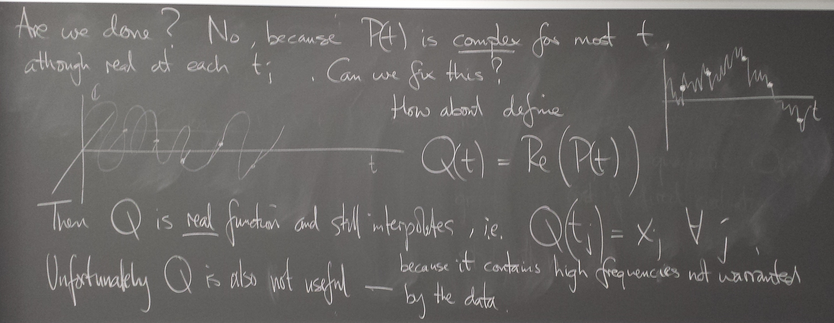 Are we done? No, because P(t) is complex for most t,
athough real at each tj. Can we fix this?
How about define
ℂ
t
t
Q(t) = Re(P(t))
Then Q is real function and still interpolates, i.e. Q(tj) = xj ∀ j.
Unfortunately Q is also not useful — because it contains high frequencies not warranted
by the data.